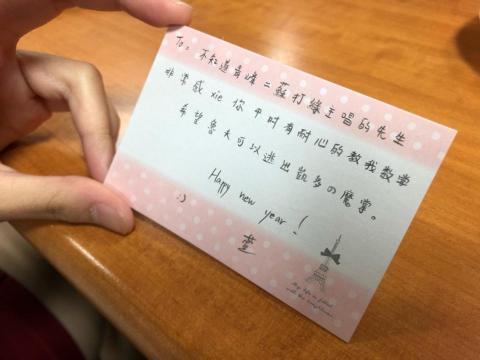 To: 不知道青峰=蘇打綠主唱的先生
非常感xie你甲叫有耐心的教我數學
希望魯夫可以逃出凱多の魔掌。
Happy new year!
:)
萱